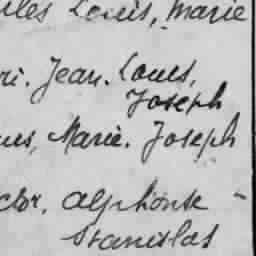 les Louis, Marie
ri. Jean. Louis,
Joseph
us, Marie. Joseph
ctor. Alphonse -
Stanislas